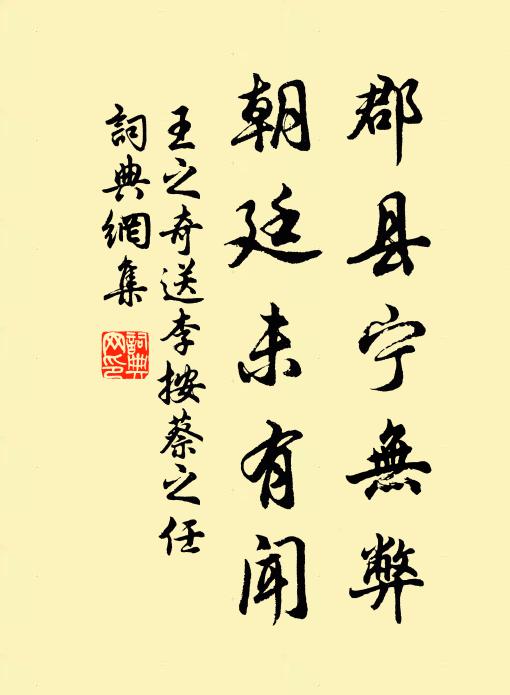 郡县宁無弊
朝廷未有闻
王之奇送李按蔡之任
詞典網集
詞典网印